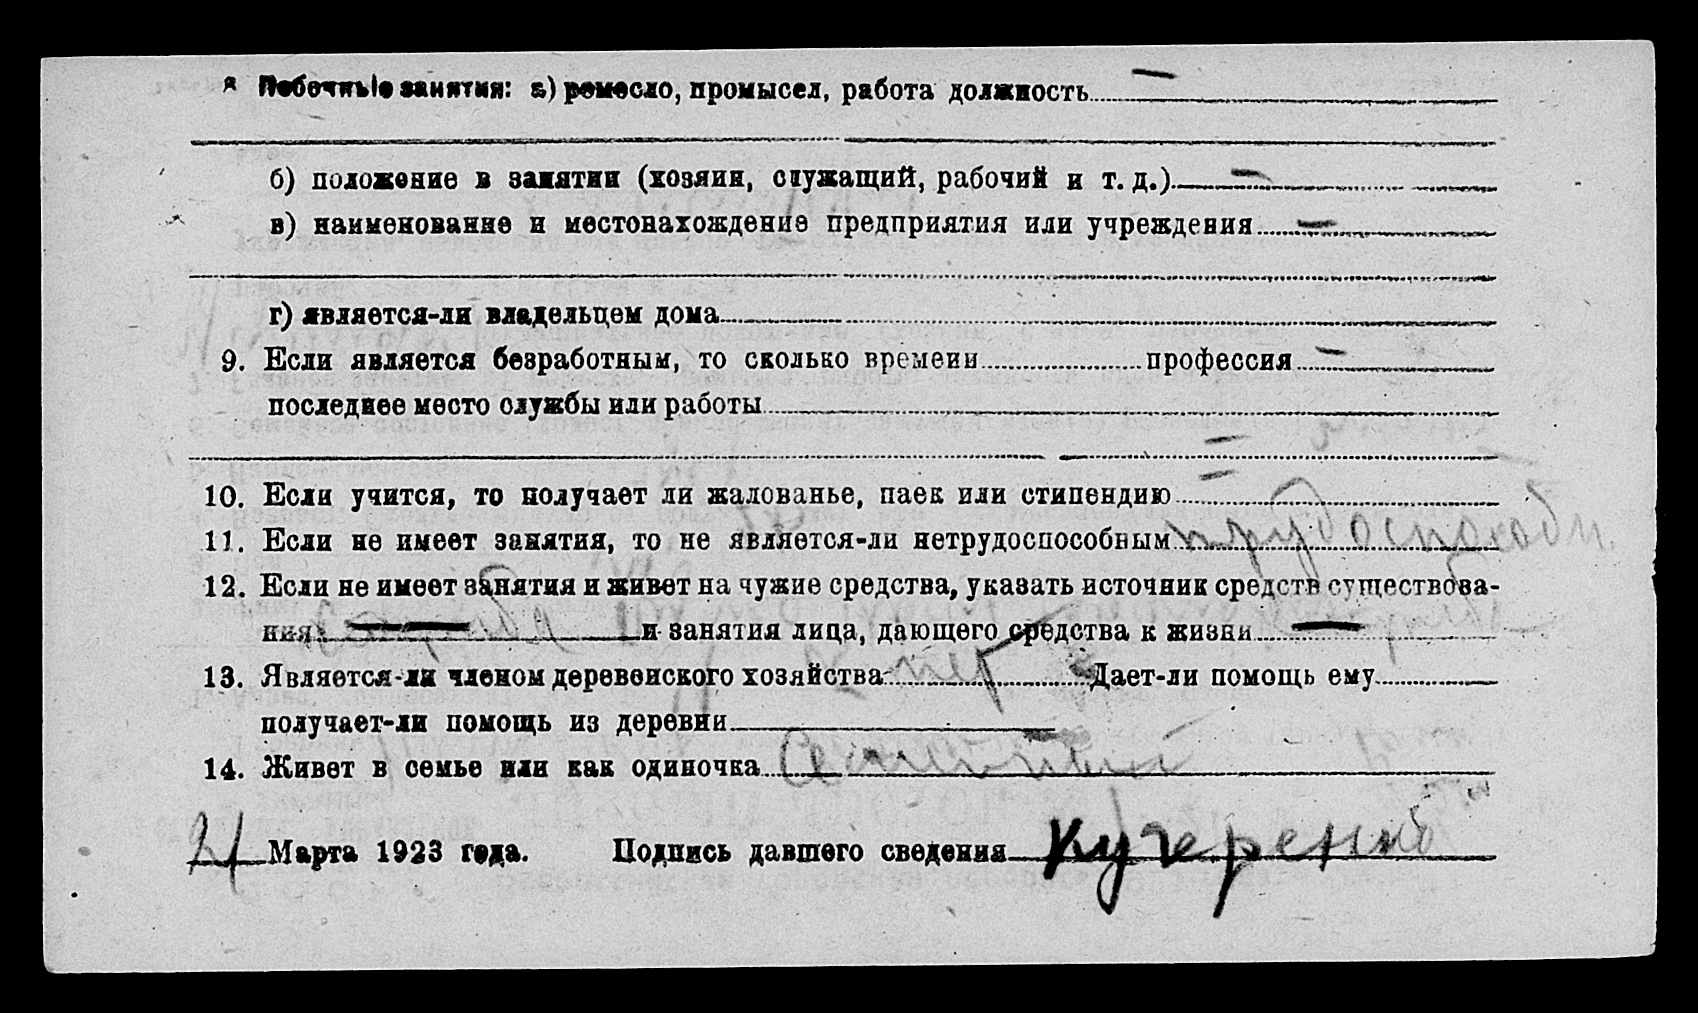 я Побочные занятия: а) ремесло, промысел, работа должность —
б) положение в занятии (хозяин, служащий, рабочий и т. д.) —
в) наименование и местонахождение предприятия или учреждения —
г) является-ли владельцем дома
9. Если является безработным, то сколько времени профессия —
последнее место службы или работы
—
10. Если учится, то получает ли жалованье, паек или стипендию —
11. Если не имеет занятия, то не является-ли нетрудоспособным трудоспособн.
12. Если не имеет занятия и живет на чужие средства, указать источник средств существова-
ния — и занятия лица, дающего средства к жизни —
13. Является-ли членом деревенского хозяйства Дает-ли помощь ему
получает-ли помощь из деревни
14. Живет в семье или как одиночка Семейный
21 Марта 1923 года. Подпись давшего сведения Кучеренко